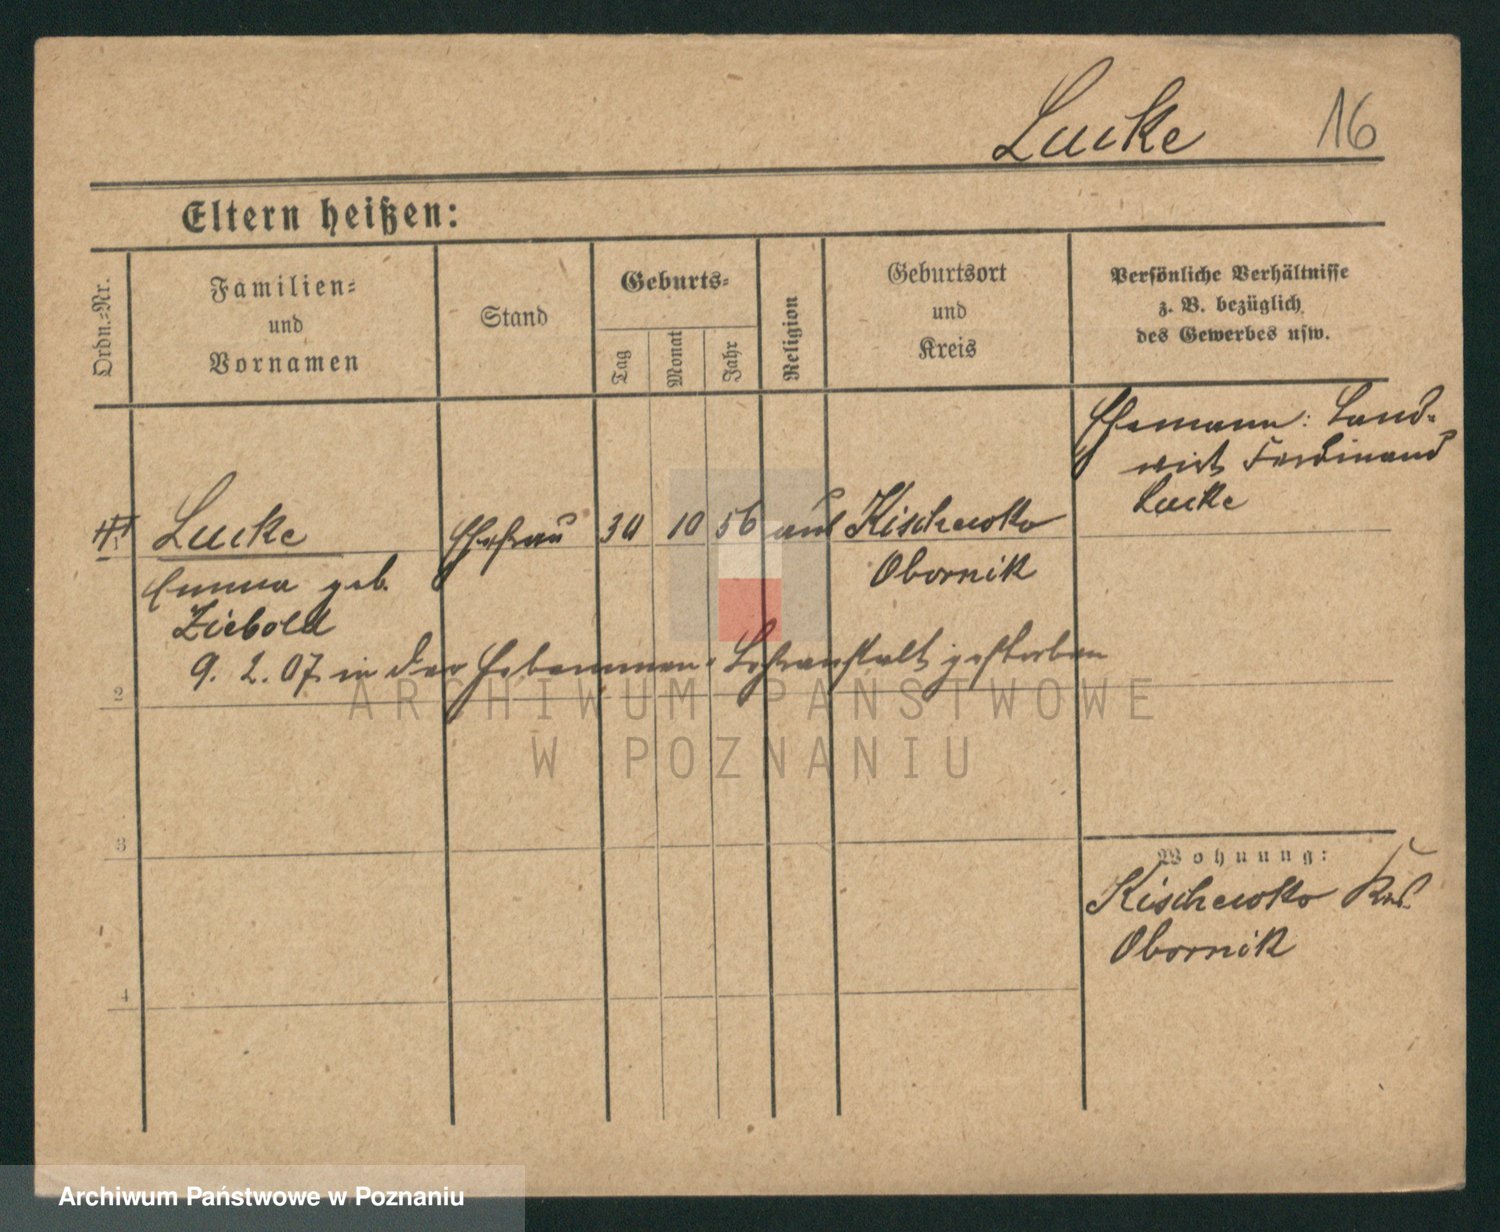 Lucke 16
Eltern heißen:
Ordn.-Nr.
Familien-
und
Vornamen
Stand
Geburts-
Tag
Monat
Jahr
Religion
Geburtsort
und
Kreis
Persönliche Verhältnisse
z. B. bezüglich
des Gewerbes usw.
Ehemann: Land-
wirt Ferdinand
Lucke
Lucke Ehefrau 30 10 56 Kischewko
Emma geb. Obornik
Ziebold
9. 2. 07 in der Hebammen-Lehranstalt gestorben
2
3
4
Wohnung:
Kischewko Krs.
Obornik
ARCHIWUM PAŃSTWOWE
W POZNANIU
Archiwum Państwowe w Poznaniu